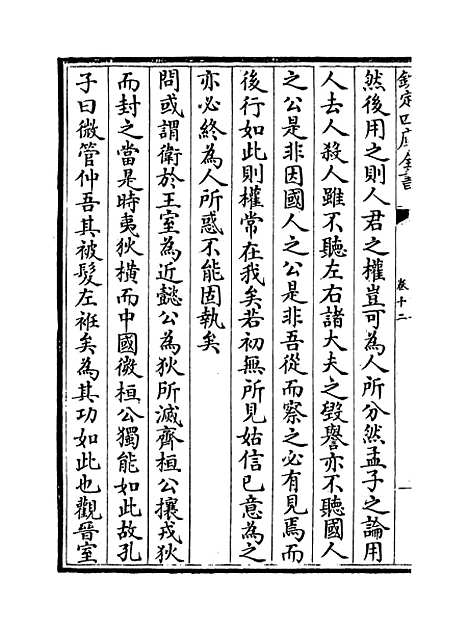 欽定四庫全書
卷十二
然後用之則人君之權豈可為人所分然孟子之論用
人去人殺人雖不聽左右諸大夫之毀譽亦不聽國人
之公是非因國人之公是非吾從而察之必有見焉而
後行如此則權常在我矣若初無所見姑信已意為之
亦必終為人所惑不能固執矣
問或謂衛於王室為近懿公為狄所滅齊桓公攘戎狄
而封之當是時夷狄橫而中國微桓公獨能如此故孔
子曰微管仲吾其被髮左袵矣為其功如此也觀晉室